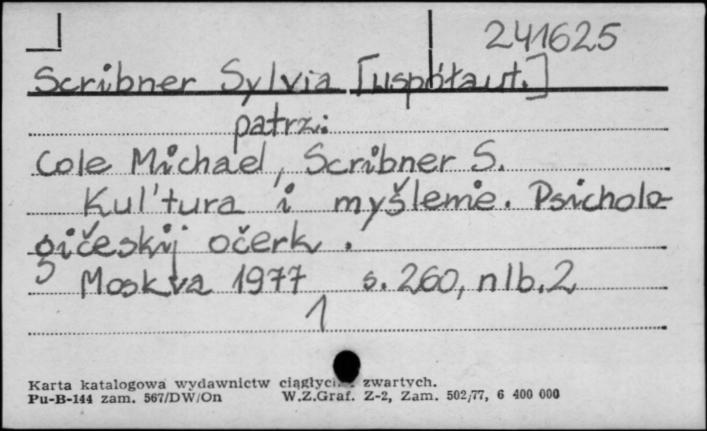 241625
Scribner Sylvia [współaut.]
patrz:
Cole Michael, Scribner S.
Kul'tura i myšlenie. Psicholo-
gičeskij očerk.
Moskva 1977 s. 260, nlb. 2
1
Karta katalogowa wydawnictw ciągłych zwartych.
Pu-B-144 zam. 567/DW/On W.Z.Graf. Z-2, Zam. 502/77, 6 400 000